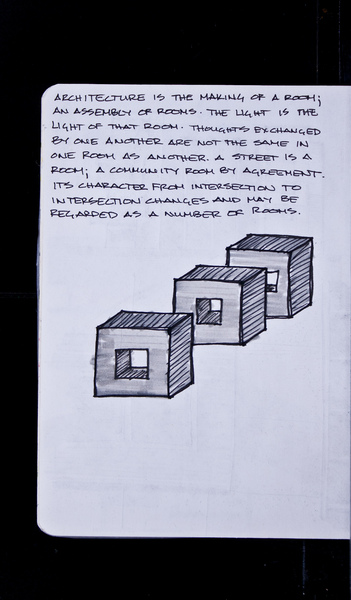 ARCHITECTURE IS THE MAKING OF A ROOM;
AN ASSEMBLY OF ROOMS. THE LIGHT IS THE
LIGHT OF THAT ROOM. THOUGHTS EXCHANGED
BY ONE ANOTHER ARE NOT THE SAME IN
ONE ROOM AS ANOTHER. A STREET IS A
ROOM; A COMMUNITY ROOM BY AGREEMENT.
ITS CHARACTER FROM INTERSECTION TO
INTERSECTION CHANGES AND MAY BE
REGARDED AS A NUMBER OF ROOMS.